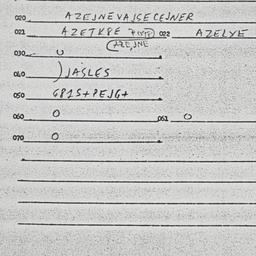 020 AZEJNEVAJSECEJNER
021 AZETKPE 022 AZELYE
AZEJNE
030 0
040 )JASLES
050 6815+PEJG+
060 0 061 0
070 0